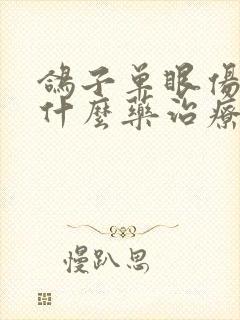 鴿子單眼傷
什麼藥治療
慢趴思